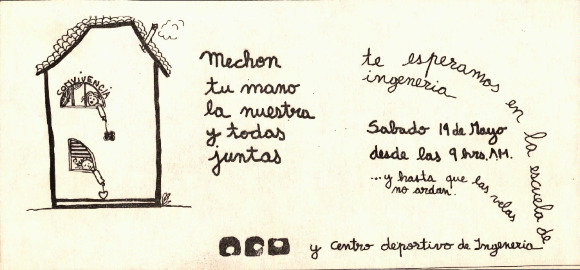 CONVIVENCIA
Mechon
tu mano
la nuestra
y todas
juntas
te esperamos en la escuela de
ingeneria
Sabado 19 de Mayo
desde las 9 hrs. AM.
...y hasta que las velas
no ardan.
y centro deportivo de Ingenería